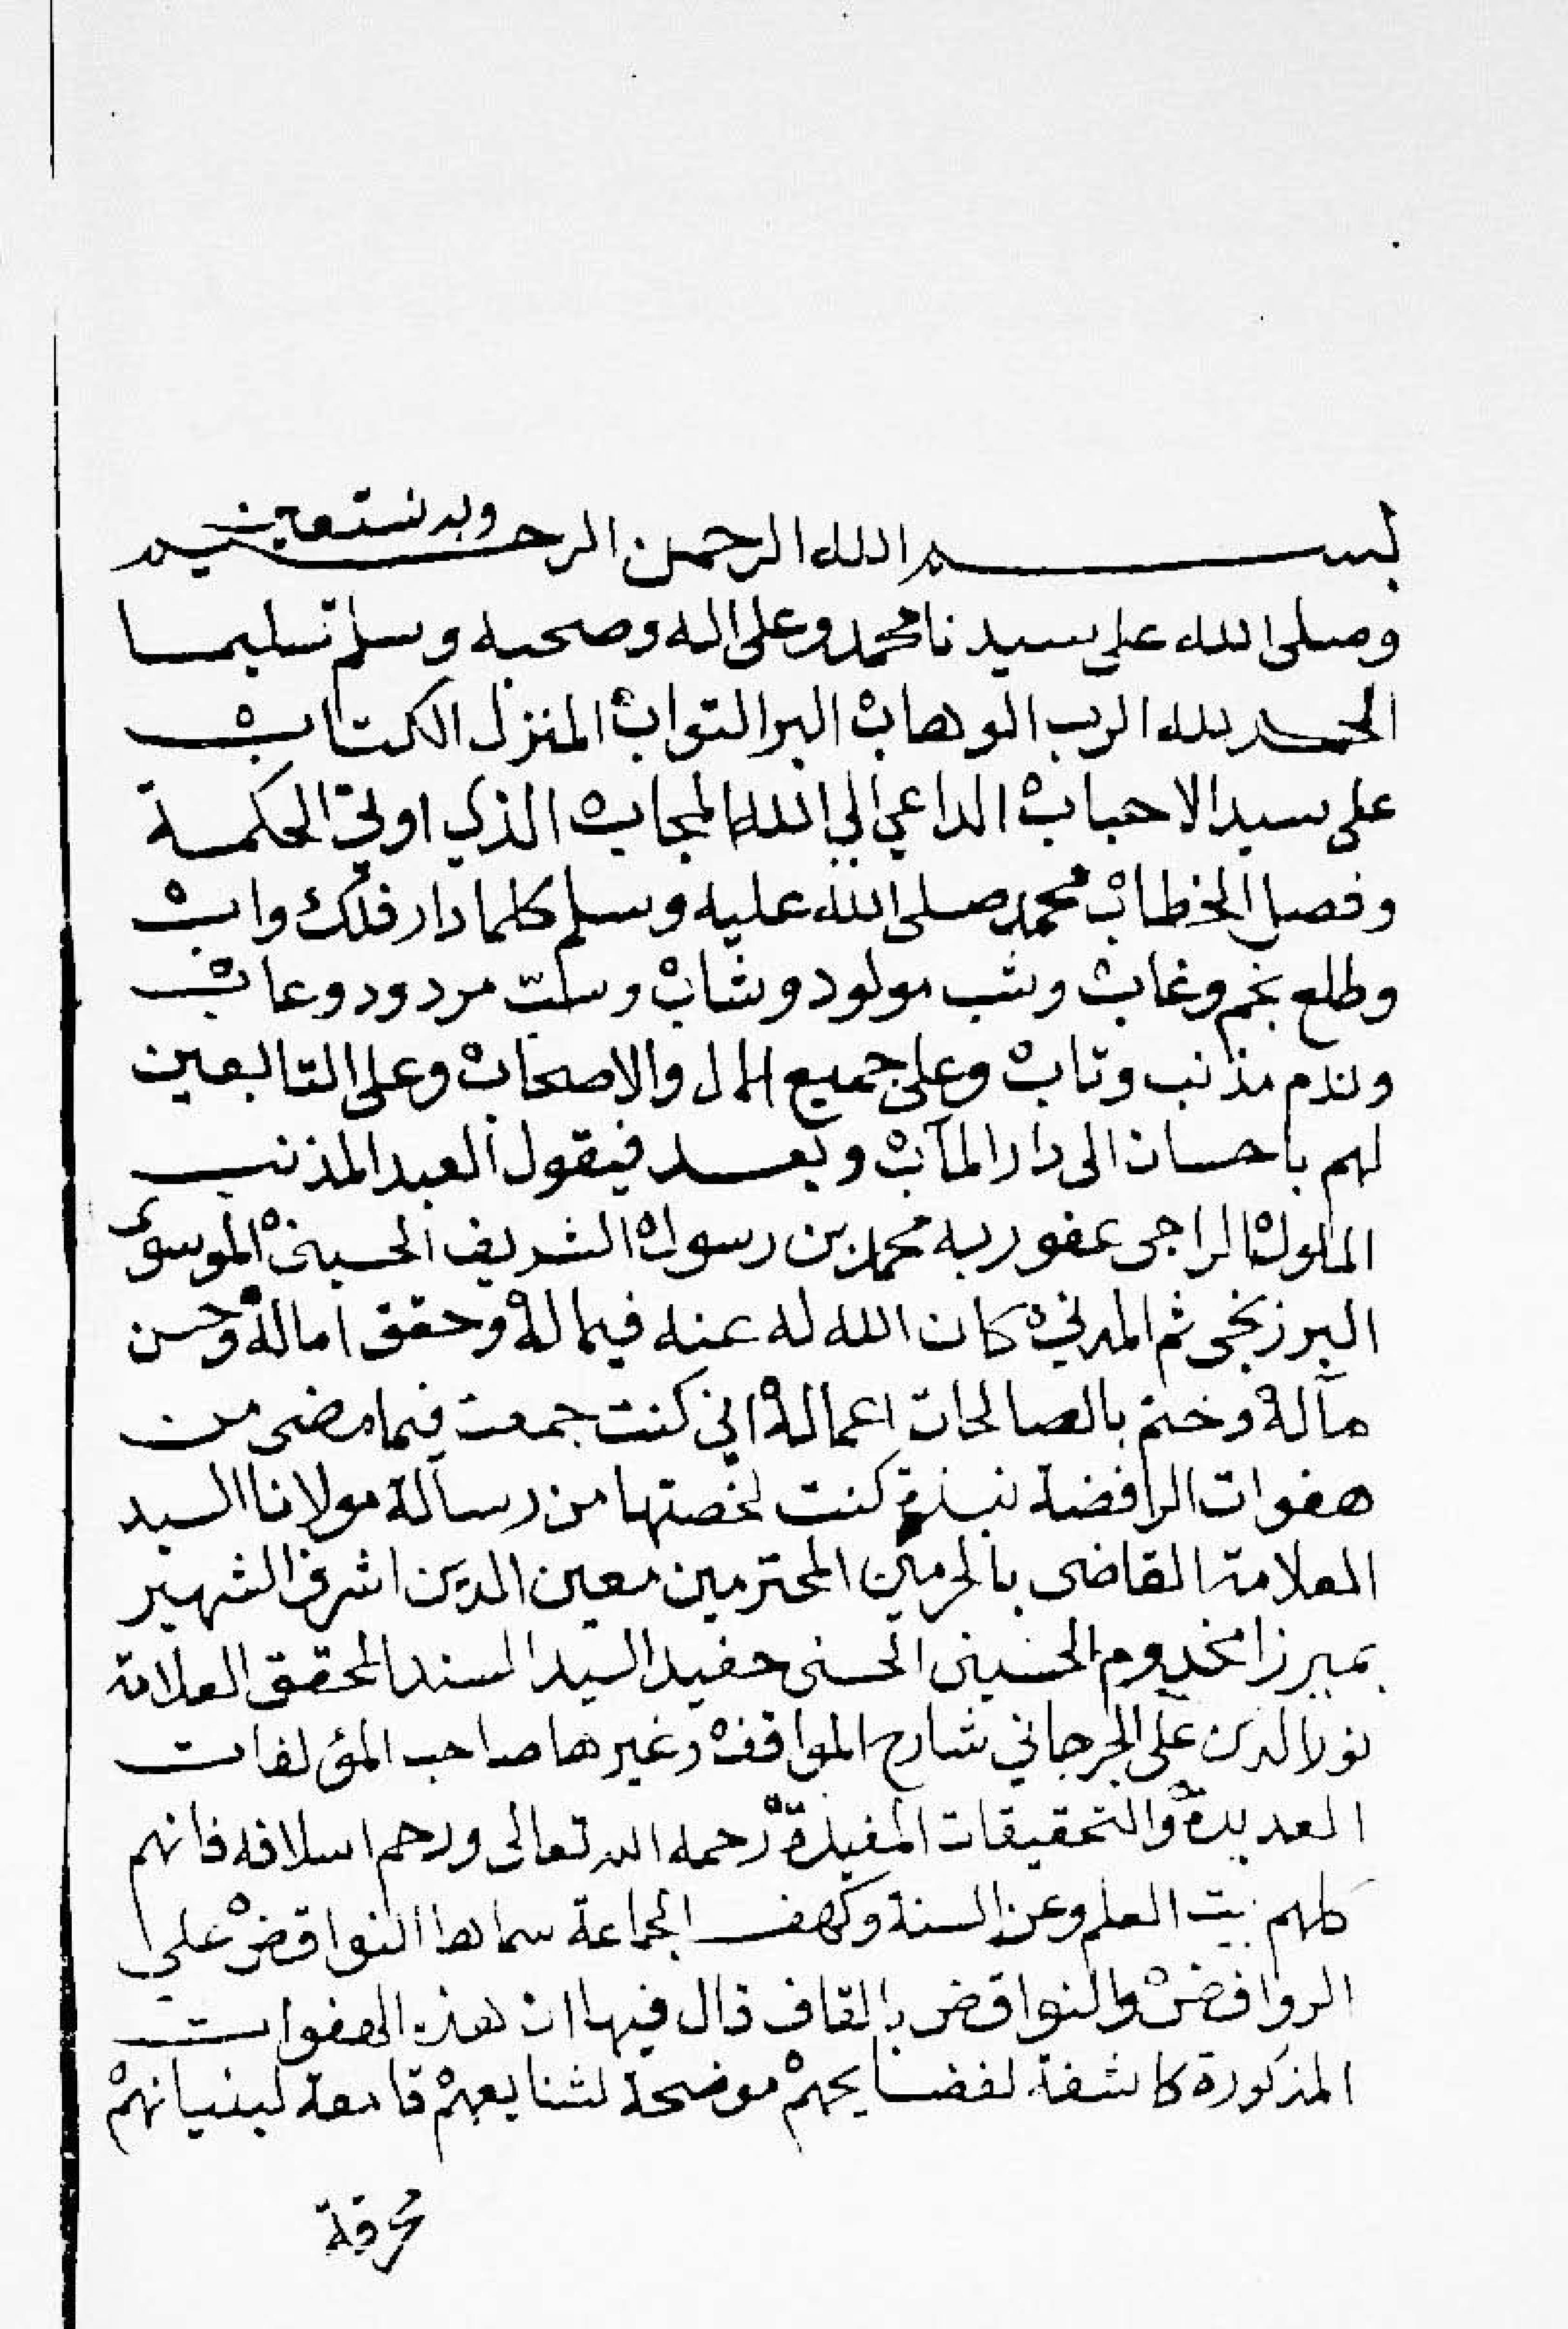 بسم الله الرحمن الرحيم وبه نستعين
وصلى الله على سيدنا محمد وعلى اله وصحبه وسلم تسليما
الحمد لله الرب الوهاب البر التواب المنزل الكتاب
على سيد الاحباب الداعي الى الله المجاب الذي اوتي الحكمة
وفصل الخطاب محمد صلى الله عليه وسلم كلما دار فلك واب
وطلع نجم وغاب وشب مولود وشاب وسب مردود وعاب
وندم مذنب وتاب وعلى جميع الال والاصحاب وعلى التابعين
لهم باحسان الى دار المآب وبعد فيقول العبد المذنب
الملوك الراجى عفو ربه محمد بن رسول الشريف الحسيني الموسوى
البرزنجى ثم المدني كان الله له عنه فيماله وحقق اماله وحسن
مآله وختم بالصالحات اعماله اني كنت جمعت فيما مضى من
هفوات الرافضة نبذة كنت لخصتها من رسالة مولانا السيد
العلامة القاضى بالحرمين المحترمين معين الدين اشرف الشهير
بميرزا مخدوم الحسينى الحسنى حفيد السيد السند المحقق العلامة
نور الدين على الجرجاني شارح المواقف وغيرها صاحب المؤلفات
العديدة والتحقيقات المفيدة رحمه الله تعالى ورحم اسلافه فانهم
كلهم بيت العلم وعز السنة وكهف الجماعة سماها النواقض على
الروافض والنواقض بالقاف قال فيها ان هذه الهفوات
المذكورة كاشفة لفضايحهم موضحة لشنايعهم قامعة لبنيانهم
محرقة